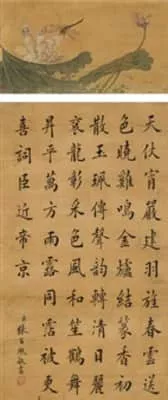 天仗宵嚴建羽旄春雲送
色曉雞鳴金爐結篆香初
散玉珮傳聲韻轉清日麗
袞龍彰采色風和笙鶴舞
昇平萬方雨露同霑被更
喜詞臣近帝京
臣張百熙敬書